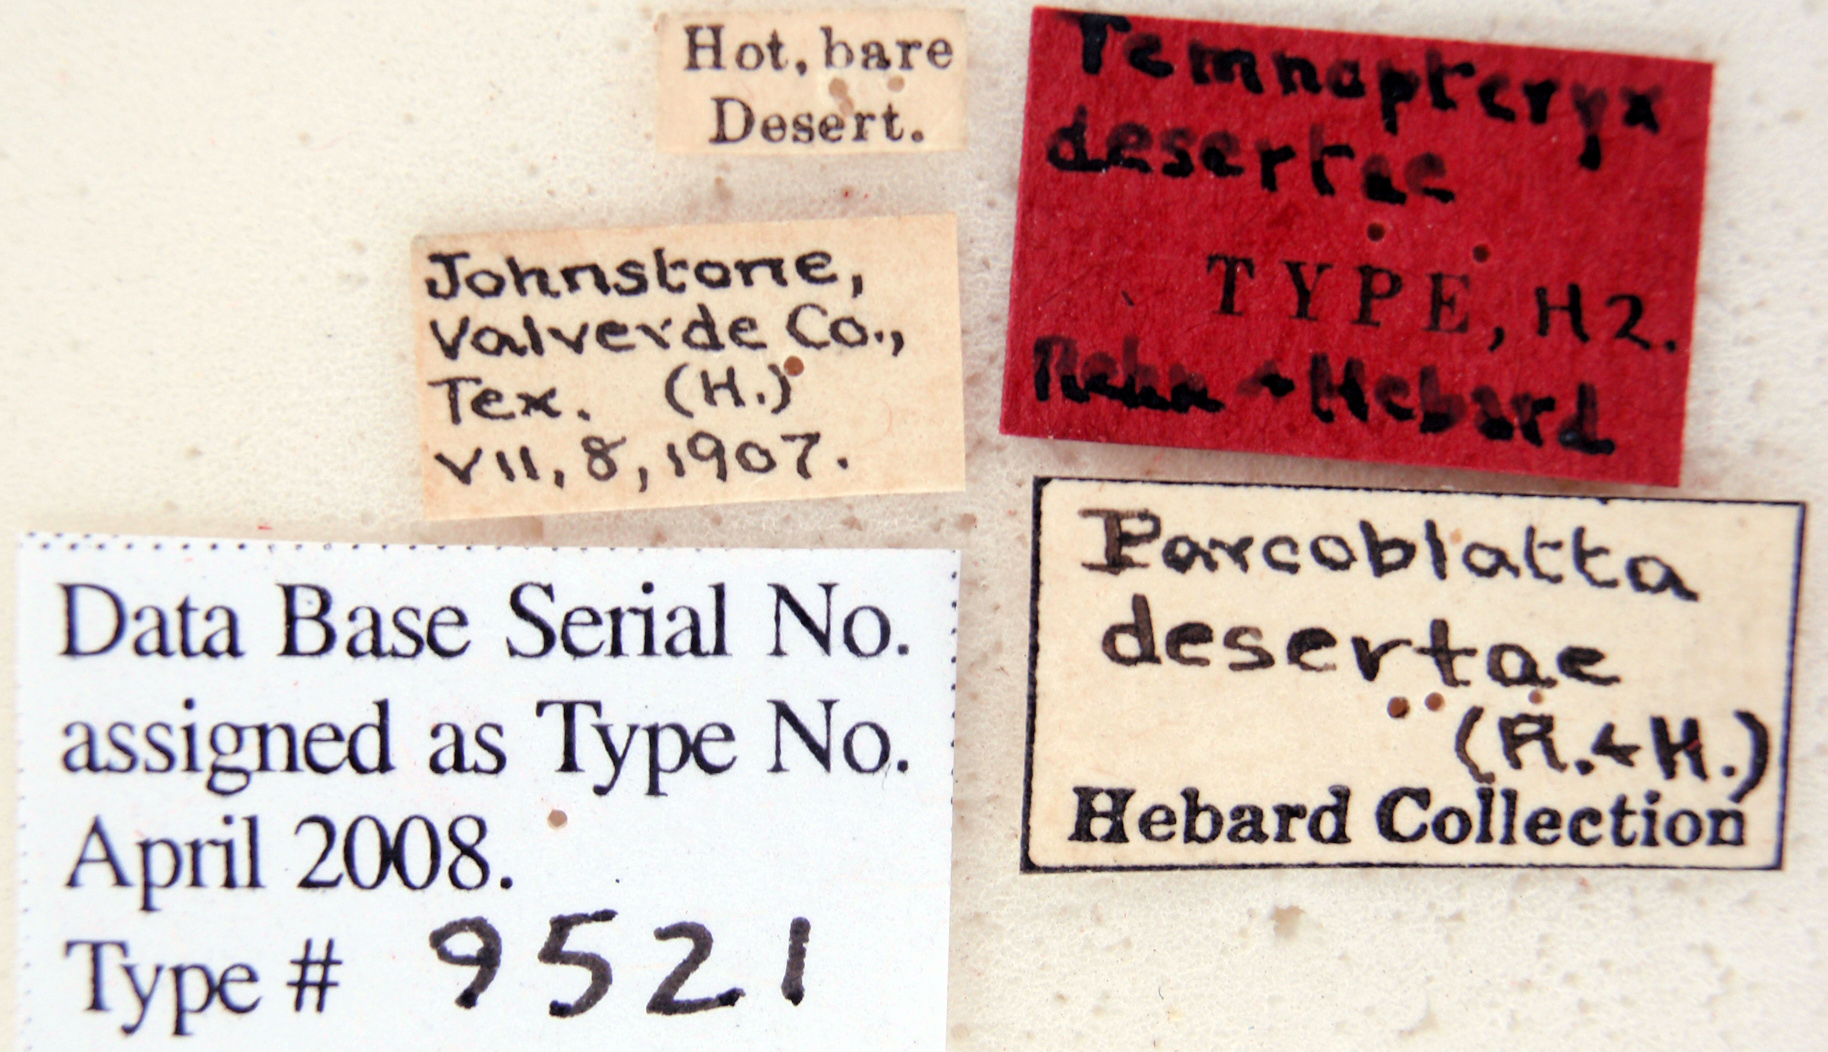 Hot, bare
Desert.
Johnstone,
Valverde Co.,
Tex. (H.)
VII, 8, 1907.
Data Base Serial No.
assigned as Type No.
April 2008.
Type # 9521
Temnopteryx
desertae
TYPE, H2.
Rehn & Hebard
Parcoblatta
desertae
(R. & H.)
Hebard Collection